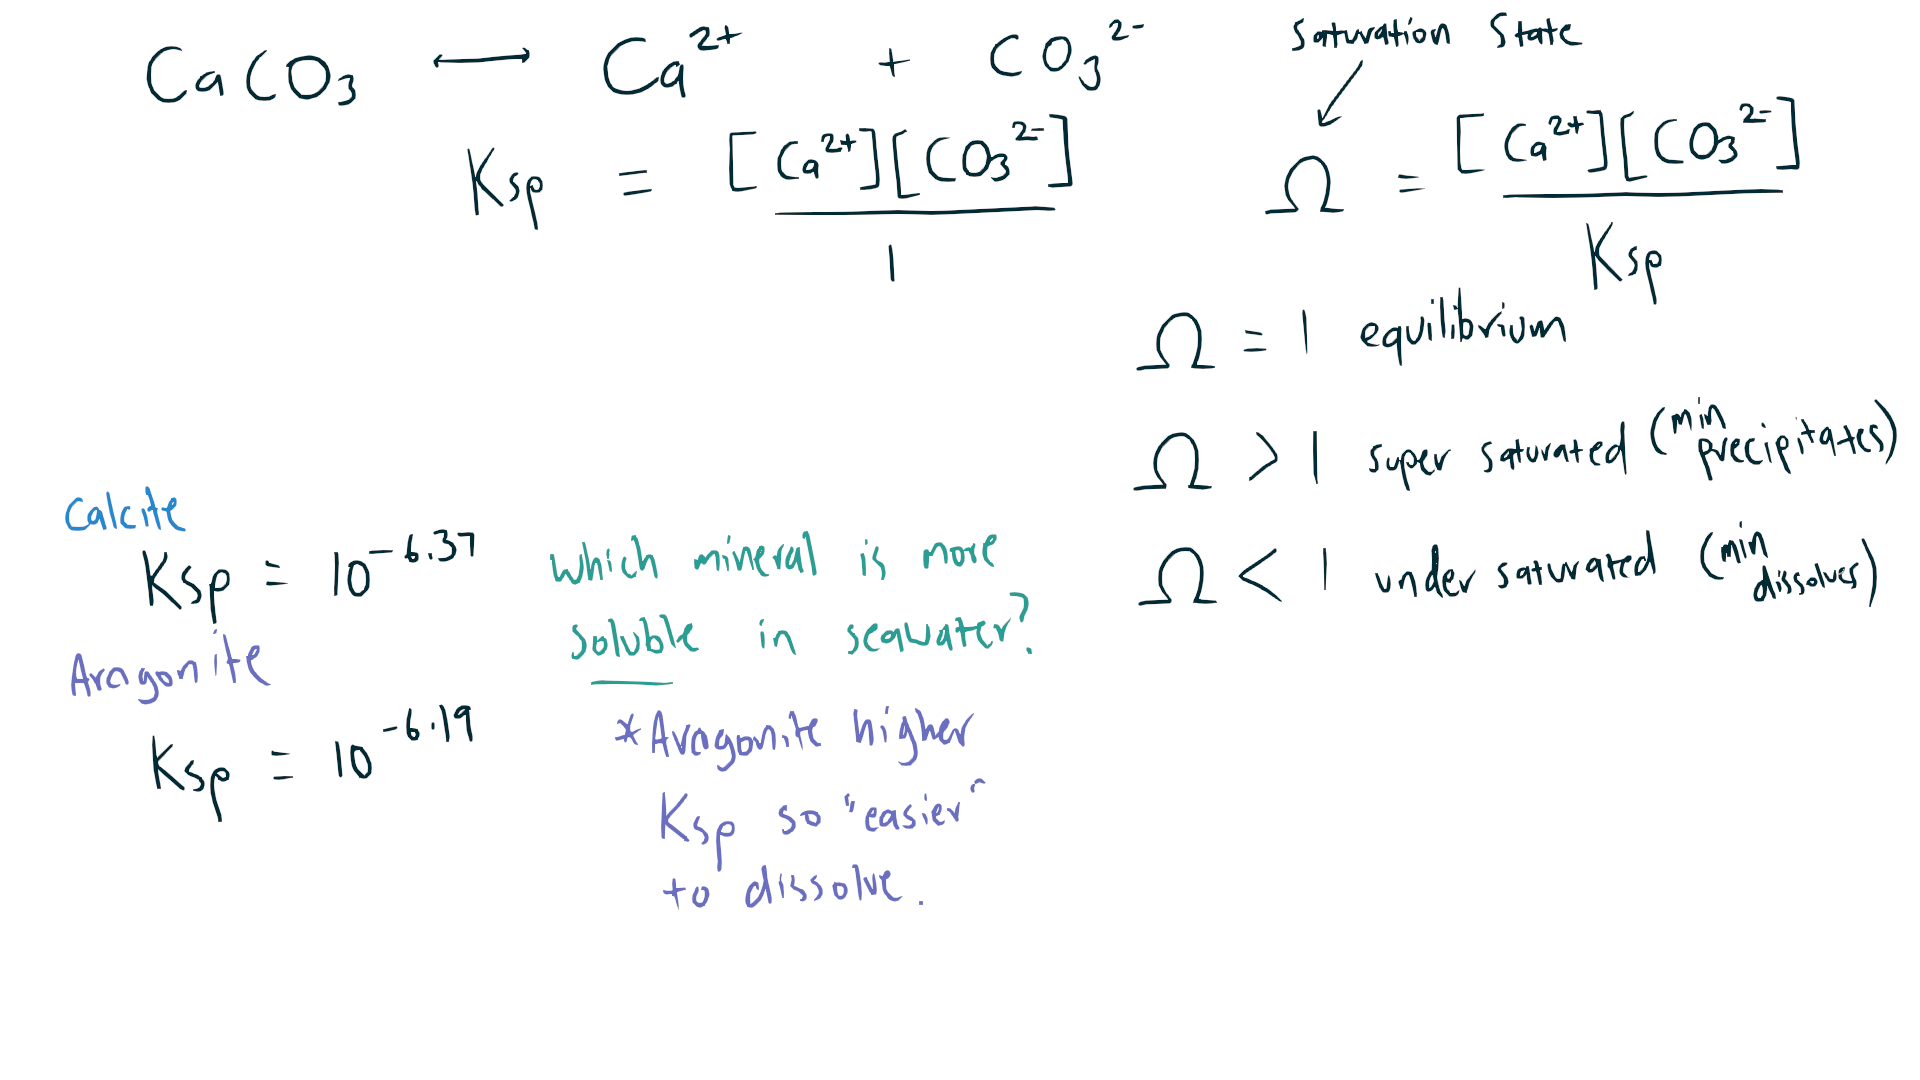 CaCO₃ ⟷ Ca²⁺ + CO₃²⁻
Ksp = [Ca²⁺][CO₃²⁻] / 1
Saturation State
Ω = [Ca²⁺][CO₃²⁻] / Ksp
Ω = 1 equilibrium
Ω > 1 super saturated (min precipitates)
Ω < 1 under saturated (min dissolves)
Calcite
Ksp = 10⁻⁶·³⁷
Aragonite
Ksp = 10⁻⁶·¹⁹
Which mineral is more
soluble in seawater?
*Aragonite higher
Ksp so "easier"
to dissolve.